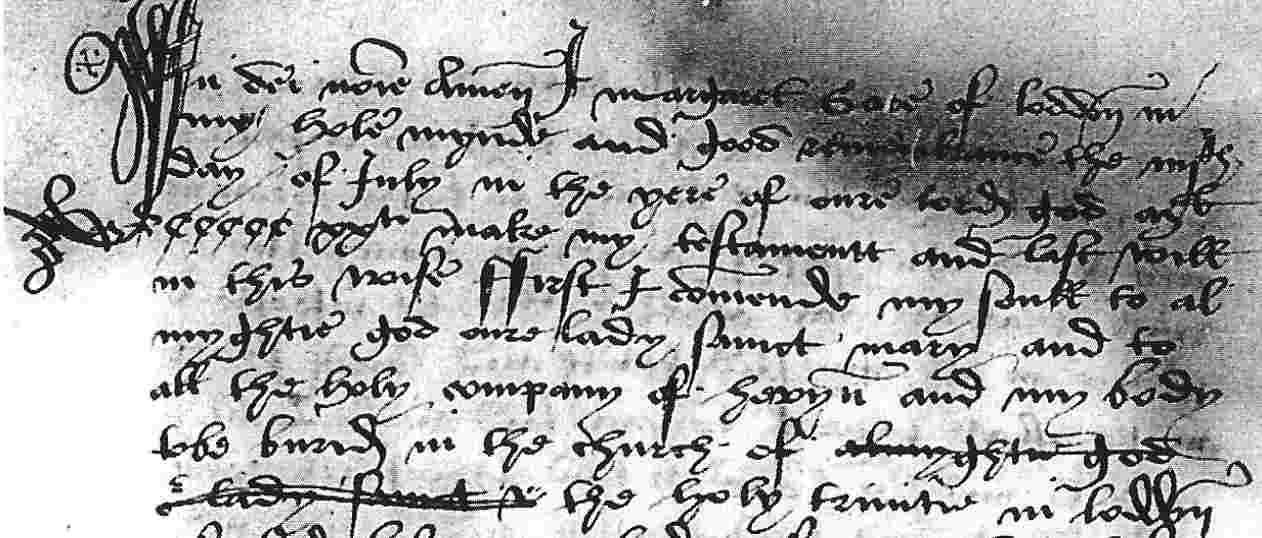 In dei noie Amen I margaret Gate of loddon in
my hole mynde and good remembrance the
day of July in the yere of oure lord god
xxti make my testamentt and last will
in this wise ffirst I comende my soull to al
myghtie god oure lady sainct mary and to
all the holy company of hevyn and my body
tobe buried in the church of almyghtie god
lady sainct the holy trinitie in loddon